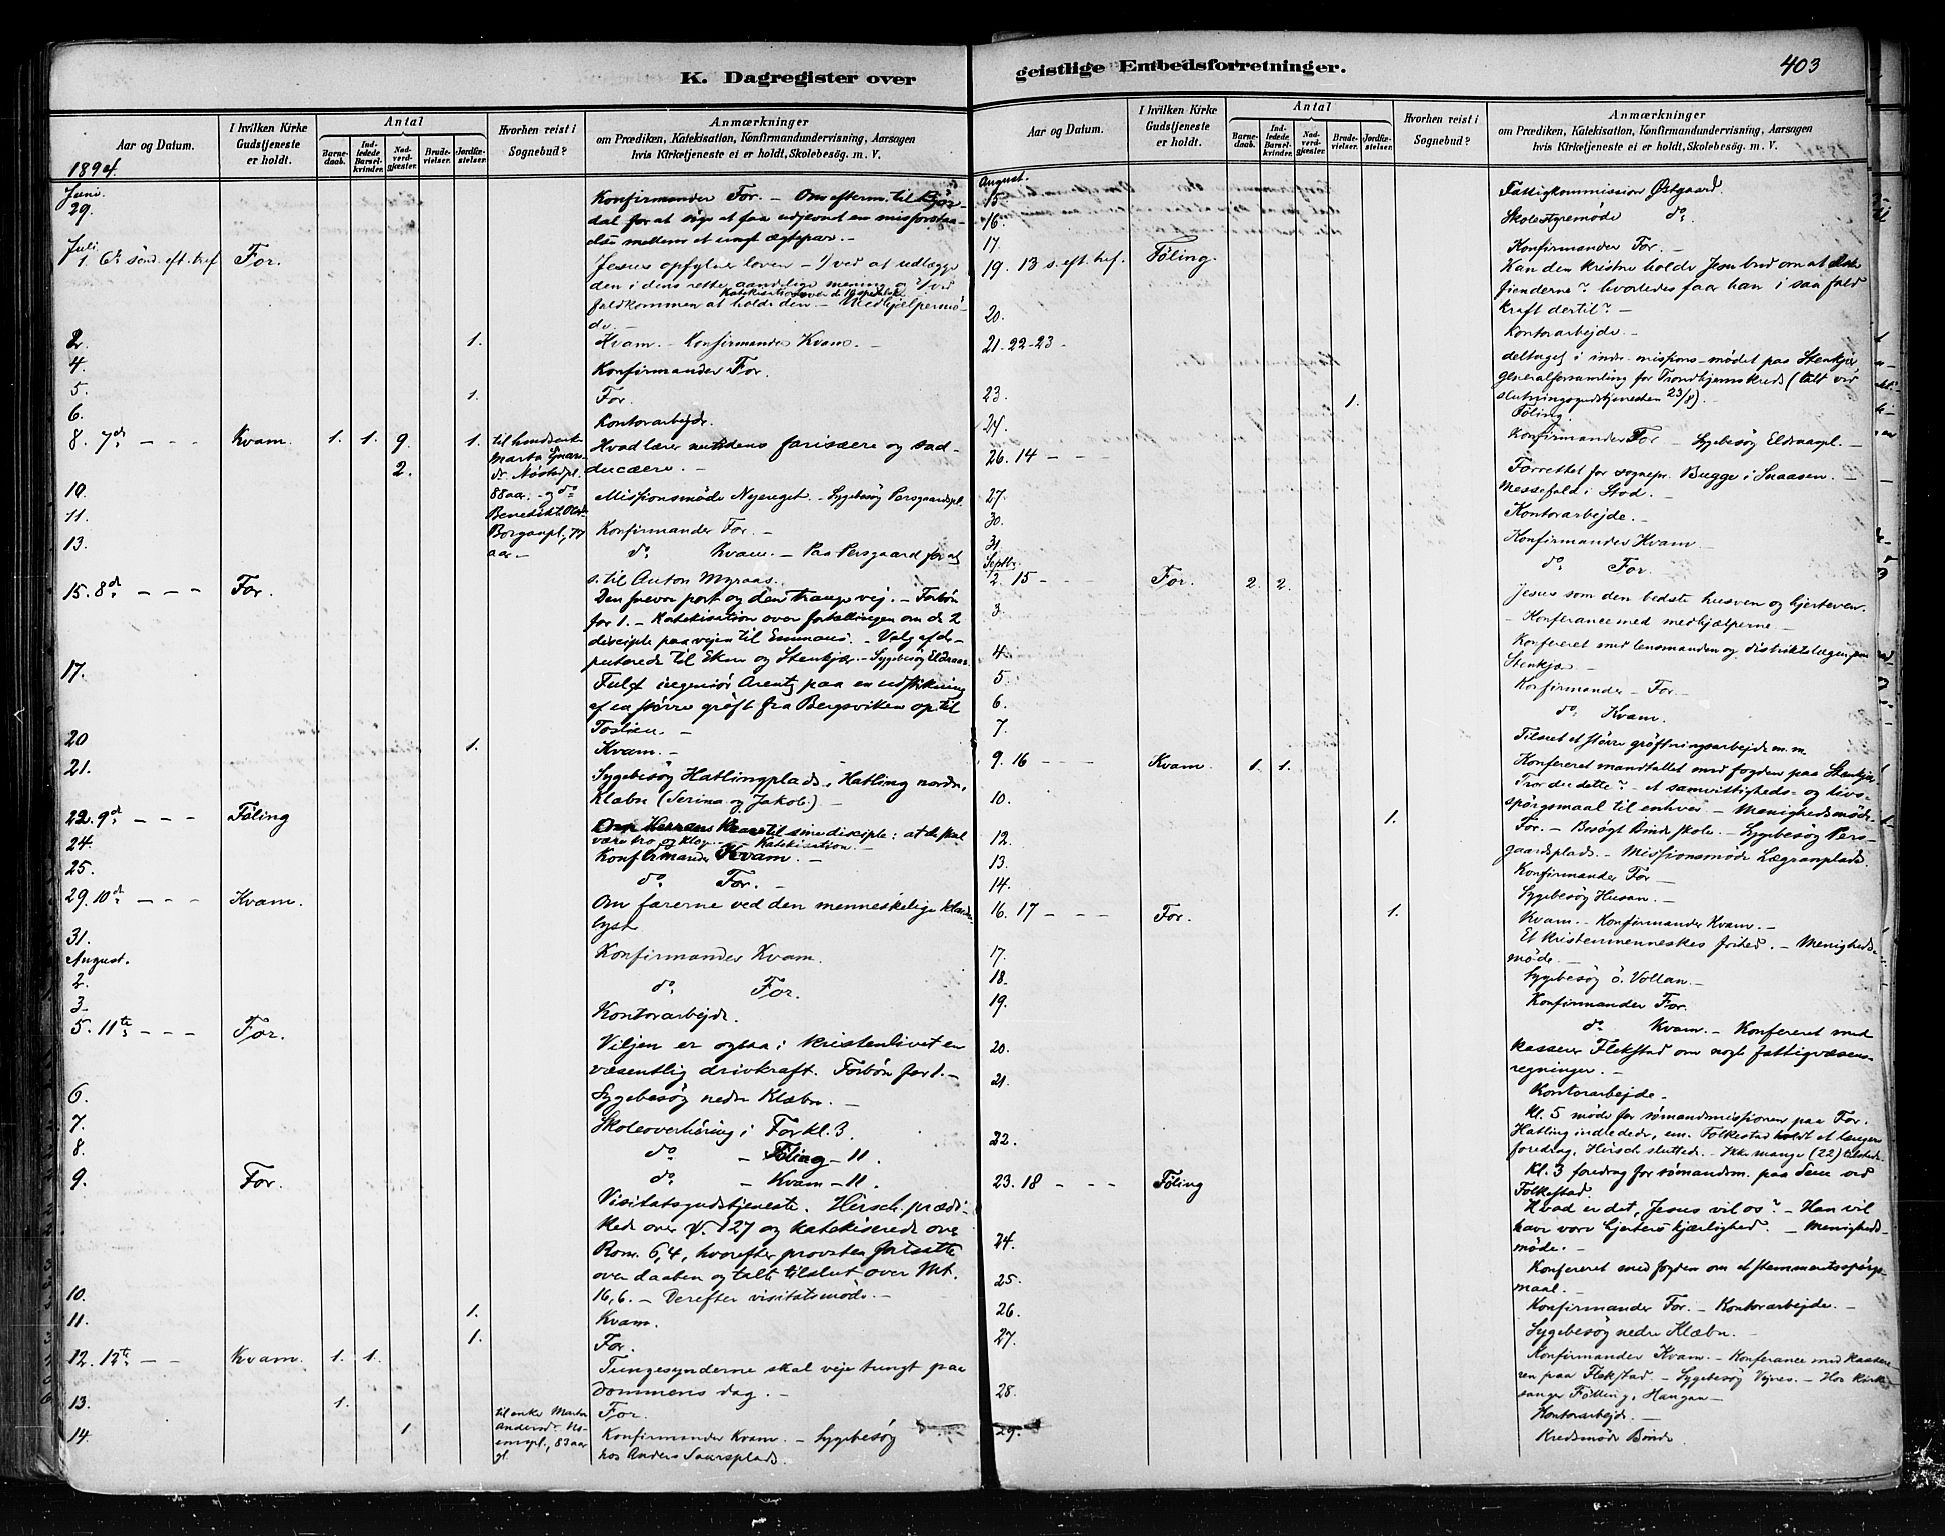 K. Dagregister over
Aar og Datum.
I hvilken Kirke Gudstjeneste er holdt.
Antal
Barnedaab.
Indledede Barselkvinder.
Nadverdgjester.
Brudevielser.
Jordfæstelser.
Hvorhen reist i Sognebud?
Anmærkninger
om Prædiken, Katekisation, Konfirmandundervisning, Aarsagen
hvis Kirketjeneste ei er holdt, Skolebesøg. m. V.
1894.
Juni
29. Konfirmander For. – Om efterm. til
dal for at søge at faa udjevnet en misforstaa-
else mellem et ungt ægtepar. –
Juli
1. 6te sønd. eft. tref. For. Jesus opfylder loven – 1) ved at udlægge
den i dens rette aandelige mening og 2) ved
Katekisation
fuldkommen at holde den – Medhjælpermø-
de. –
2. 1. Kvam. – Konfirmander Kvam. –
4. Konfirmander For.
5. 1. For.
6. Kontorarbejde.
8. 7de – – – Kvam. 1. 1. 9. 1. Hvad lærer nutidens farisæere og sad-
2. ducæere. –
88 aar. – og do
10. Missionsmøde Nyereget. – Sygebesøg Persgaardspl.
11. Konfirmander For. –
13. do Kvam. – Paa Persgaard for at
s. til Anton Myraas.
15. 8de – – – For. Den snevre port og den trange vej. – Forbøn
for 1. – Katekisation over fortællingen om de 2
disciple paa vejen til Emmaus. – Valg af de-
puterede til Eken og Stenkjær – Sygebesøg Eldraas
17. Fulgt ingeniør Arentz paa en udstikning
af en større grøft fra Bergsviken op til
Toslien. –
20 1. Kvam. –
21. Sygebesøg Hatlingplads, Hatling nordre,
Klæbu (Serina og Jakob.) –
22. 9de – – – Føling Om Herrens Krav til sine disciple: at de skal
være tro og kloge – Katekisation. –
24. Konfirmander Kvam. –
25. do For. –
29. 10de – – – Kvam. Om farerne ved den menneskelige klarhe
lyst
31. Konfirmander Kvam.
August.
2. do For.
3. Kontorarbejde.
5. 11te – – – For. Viljen er ogsaa i kristenlivet en
væsentlig drivkraft. Forbøn for 1. –
6. Sygebesøg nedre Klæbu. –
7. Skoleoverhøring i For kl. 3.
8. do – Føling – 11.
9. For. do – Kvam – 11.
Visitatsgudstjeneste. Hirsch prædi-
kede over ψ. 127 og katekiserede over
Rom. 6,4, hvorefter provsten fortsatte
over daaben og talte tilslut over Mt.
10. 16,6. – Derefter visitatsmøde. –
11. 1. Kvam.
1. For.
12. 12te – – Kvam. 1. 1. Tungesynderne skal veje tungt paa
dommens dag. –
13. 1. For.
14. 1 til enke Marta Konfirmander Kvam. – Sygebesøg
hos Anders Saursplads.
geistlige Embedsforretninger.
403
Aar og Datum.
I hvilken Kirke Gudstjeneste er holdt.
Antal
Barnedaab.
Indledede Barselkvinder.
Nadverdgjester.
Brudevielser.
Jordfæstelser.
Hvorhen reist i Sognebud?
Anmærkninger
om Prædiken, Katekisation, Konfirmandundervisning, Aarsagen
hvis Kirketjeneste ei er holdt, Skolebesøg. m. V.
August.
15. Fattigkommission Østgaard.
16. Skolestyremøde do.
17. Konfirmander For. –
19. 13 s. eft. tref. Føling. Kan den kristne holde Jesu bud om at elske
fienderne? hvorledes faar han i saa fald
kraft dertil? –
20. Kontorarbejde. –
21. 22 – 23 – deltaget i indre missions-mødet paa Stenkjær,
generalforsamling for Trondhjems kreds (talt ved
slutningsgudstjenesten 23/8).
23. 1. Føling.
24. Konfirmander For – Sygebesøg Eldraaspl. –
26. 14 – – Forrettet for sognepr. Bugge i Snaasen. –
Messefald i Stod. –
27. Kontorarbejde. –
30. Konfirmander Kvam –
31. do For.
Septbr.
2. 15 – – – For. 2. 2. Jesus som den bedste husven og hjerteven.
– Konferance med medhjælperne –
3. Konfereret med lensmanden og distriktslægen paa
Stenkjær –
4. Konfirmander – For –
5. do. Kvam.
6.
7. Tilseet et større grøftningsarbejde m. m.
Konfereret mandtallet med fogden paa Stenkjær
9. 16 – – – Kvam. 1. 1. Tror du dette? – et samvittigheds- og livs-
spørgsmaal til enhver – Menighedsmøde
10. 1. For. – Besøgt Binde skole. – Sygebesøg Pers-
gaardsplads. – Missionsmøde Lægranplads.
12. Konfirmander For –
13. Sygebesøg Husan. –
14. Kvam. – Konfirmander Kvam. –
16. 17 – – – For. 1. Et kristenmenneskes frihed. – Menigheds-
møde. –
17. Sygebesøg ö. Vollan. –
18. Konfirmander For.
19. do Kvam. – Konfereret med
kasserer Flekstad om nogle fattigvæsens-
regninger. –
20. Kontorarbejde. –
21. Kl. 5 møde for sømandsmissionen paa For.
Hatling indledede, em. Folkestad holdt et længere
foredrag, Hirsch sluttede. – Ikke mange (22) tilstede.
22. Kl. 3 foredrag for sømandsm. paa Sem ved
Folkestad.
23. 18 – – – Føling Hvad er det, Jesus vil os? – Han vil
have vore hjerters kjærlighed. – Menigheds-
møde. –
24. Konfereret med fogden om et stemmeretsspørgs-
maal. –
25. Konfirmander For. – Kontorarbejde. –
26. Sygebesøg nedre Klæbu. –
27. Konfirmander Kvam. – Konferance med kassere-
ren paa Flekstad. – Sygebesøg Vejnes. – Hos kirke-
sanger Følling, Haugan –
28. Kontorarbejde. –
29. Kredsmøde Binde